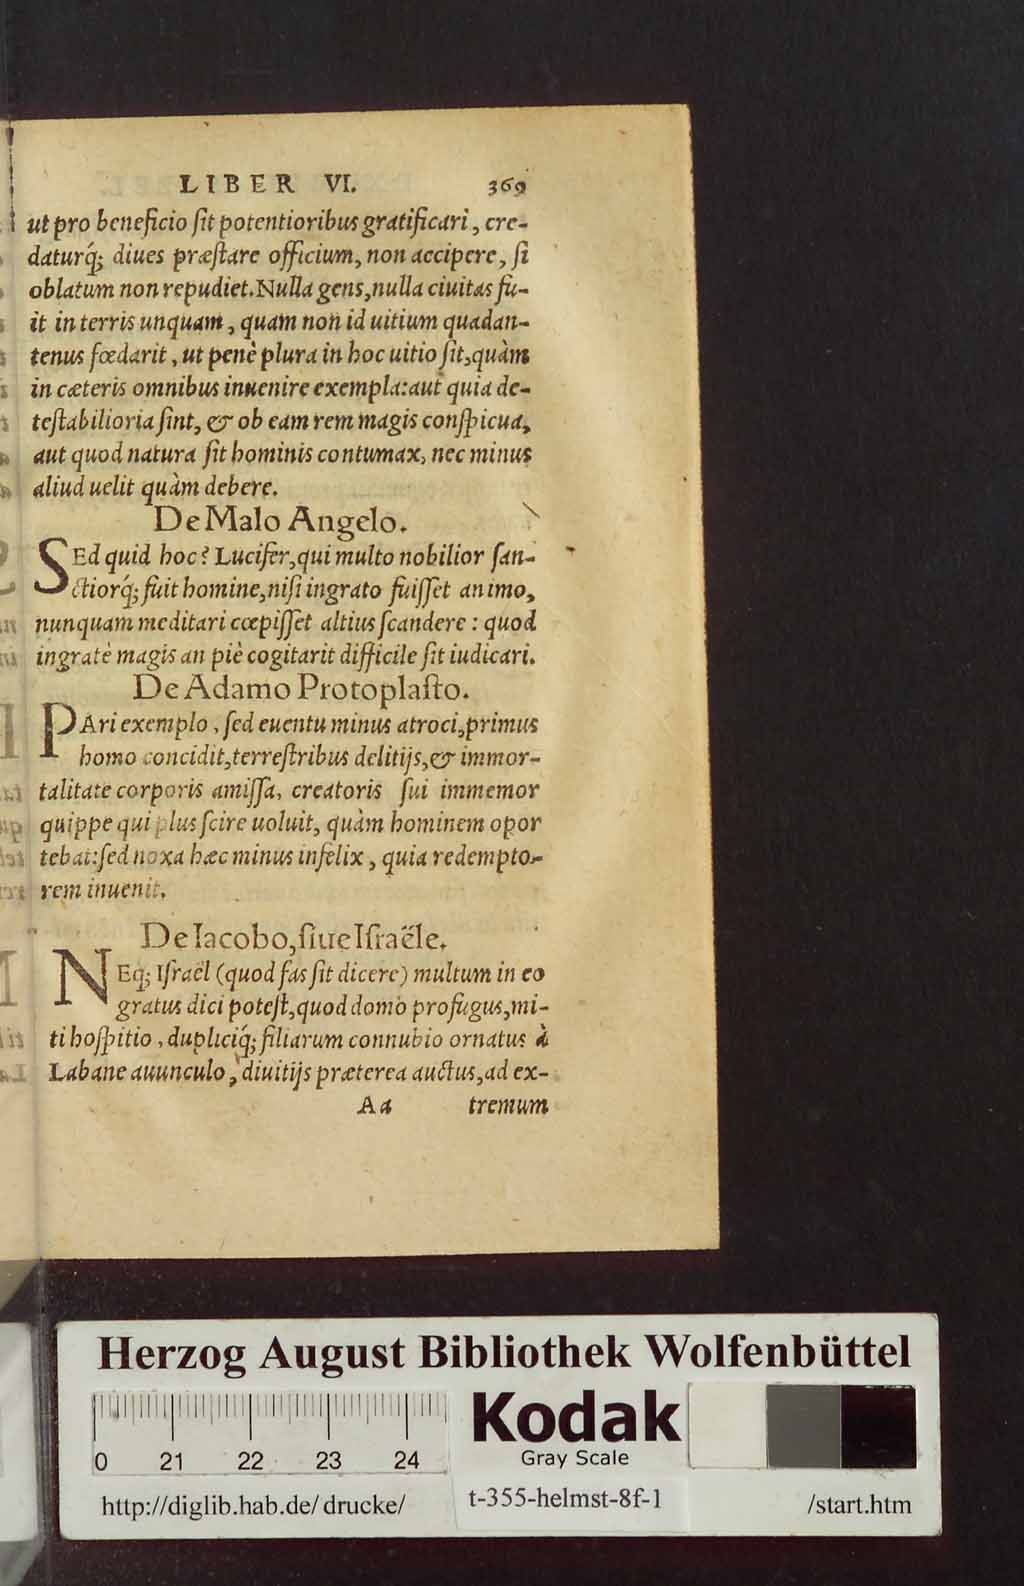 LIBER VI. 369
ut pro beneficio ſit potentioribus gratificari, cre-
daturq́; diues præſtare officium, non accipere, ſi
oblatum non repudiet. Nulla gens, nulla ciuitas fu-
it in terris unquam, quam non id uitium quadan-
tenus fœdarit, ut penè plura in hoc uitio ſit, quàm
in cæteris omnibus inuenire exempla: aut quia de-
teſtabilioria ſint, & ob eam rem magis conſpicua,
aut quod natura ſit hominis contumax, nec minus
aliud uelit quàm debere.
De Malo Angelo.
SEd quid hoc? Lucifer, qui multo nobilior ſan-
ctiorq́; fuit homine, niſi ingrato fuiſſet animo,
nunquam meditari cœpiſſet altius ſcandere: quod
ingratè magis an piè cogitarit difficile ſit iudicari.
De Adamo Protoplaſto.
PAri exemplo, ſed euentu minus atroci, primus
homo concidit, terreſtribus delitijs, & immor-
talitate corporis amiſſa, creatoris ſui immemor
quippe qui plus ſcire uoluit, quàm hominem opor
tebat: ſed noxa hæc minus infelix, quia redempto-
rem inuenit.
De Iacobo, ſiue Iſraële.
NEq; Iſraël (quod fas ſit dicere) multum in eo
gratus dici poteſt, quod domò profugus, mi-
ti hoſpitio, dupliciq́; filiarum connubio ornatus à
Labane auunculo, diuitijs præterea auctus, ad ex-
Aa tremum
Herzog August Bibliothek Wolfenbüttel
Kodak
Gray Scale
0 21 22 23 24
http://diglib.hab.de/drucke/ t-355-helmst-8f-1 /start.htm